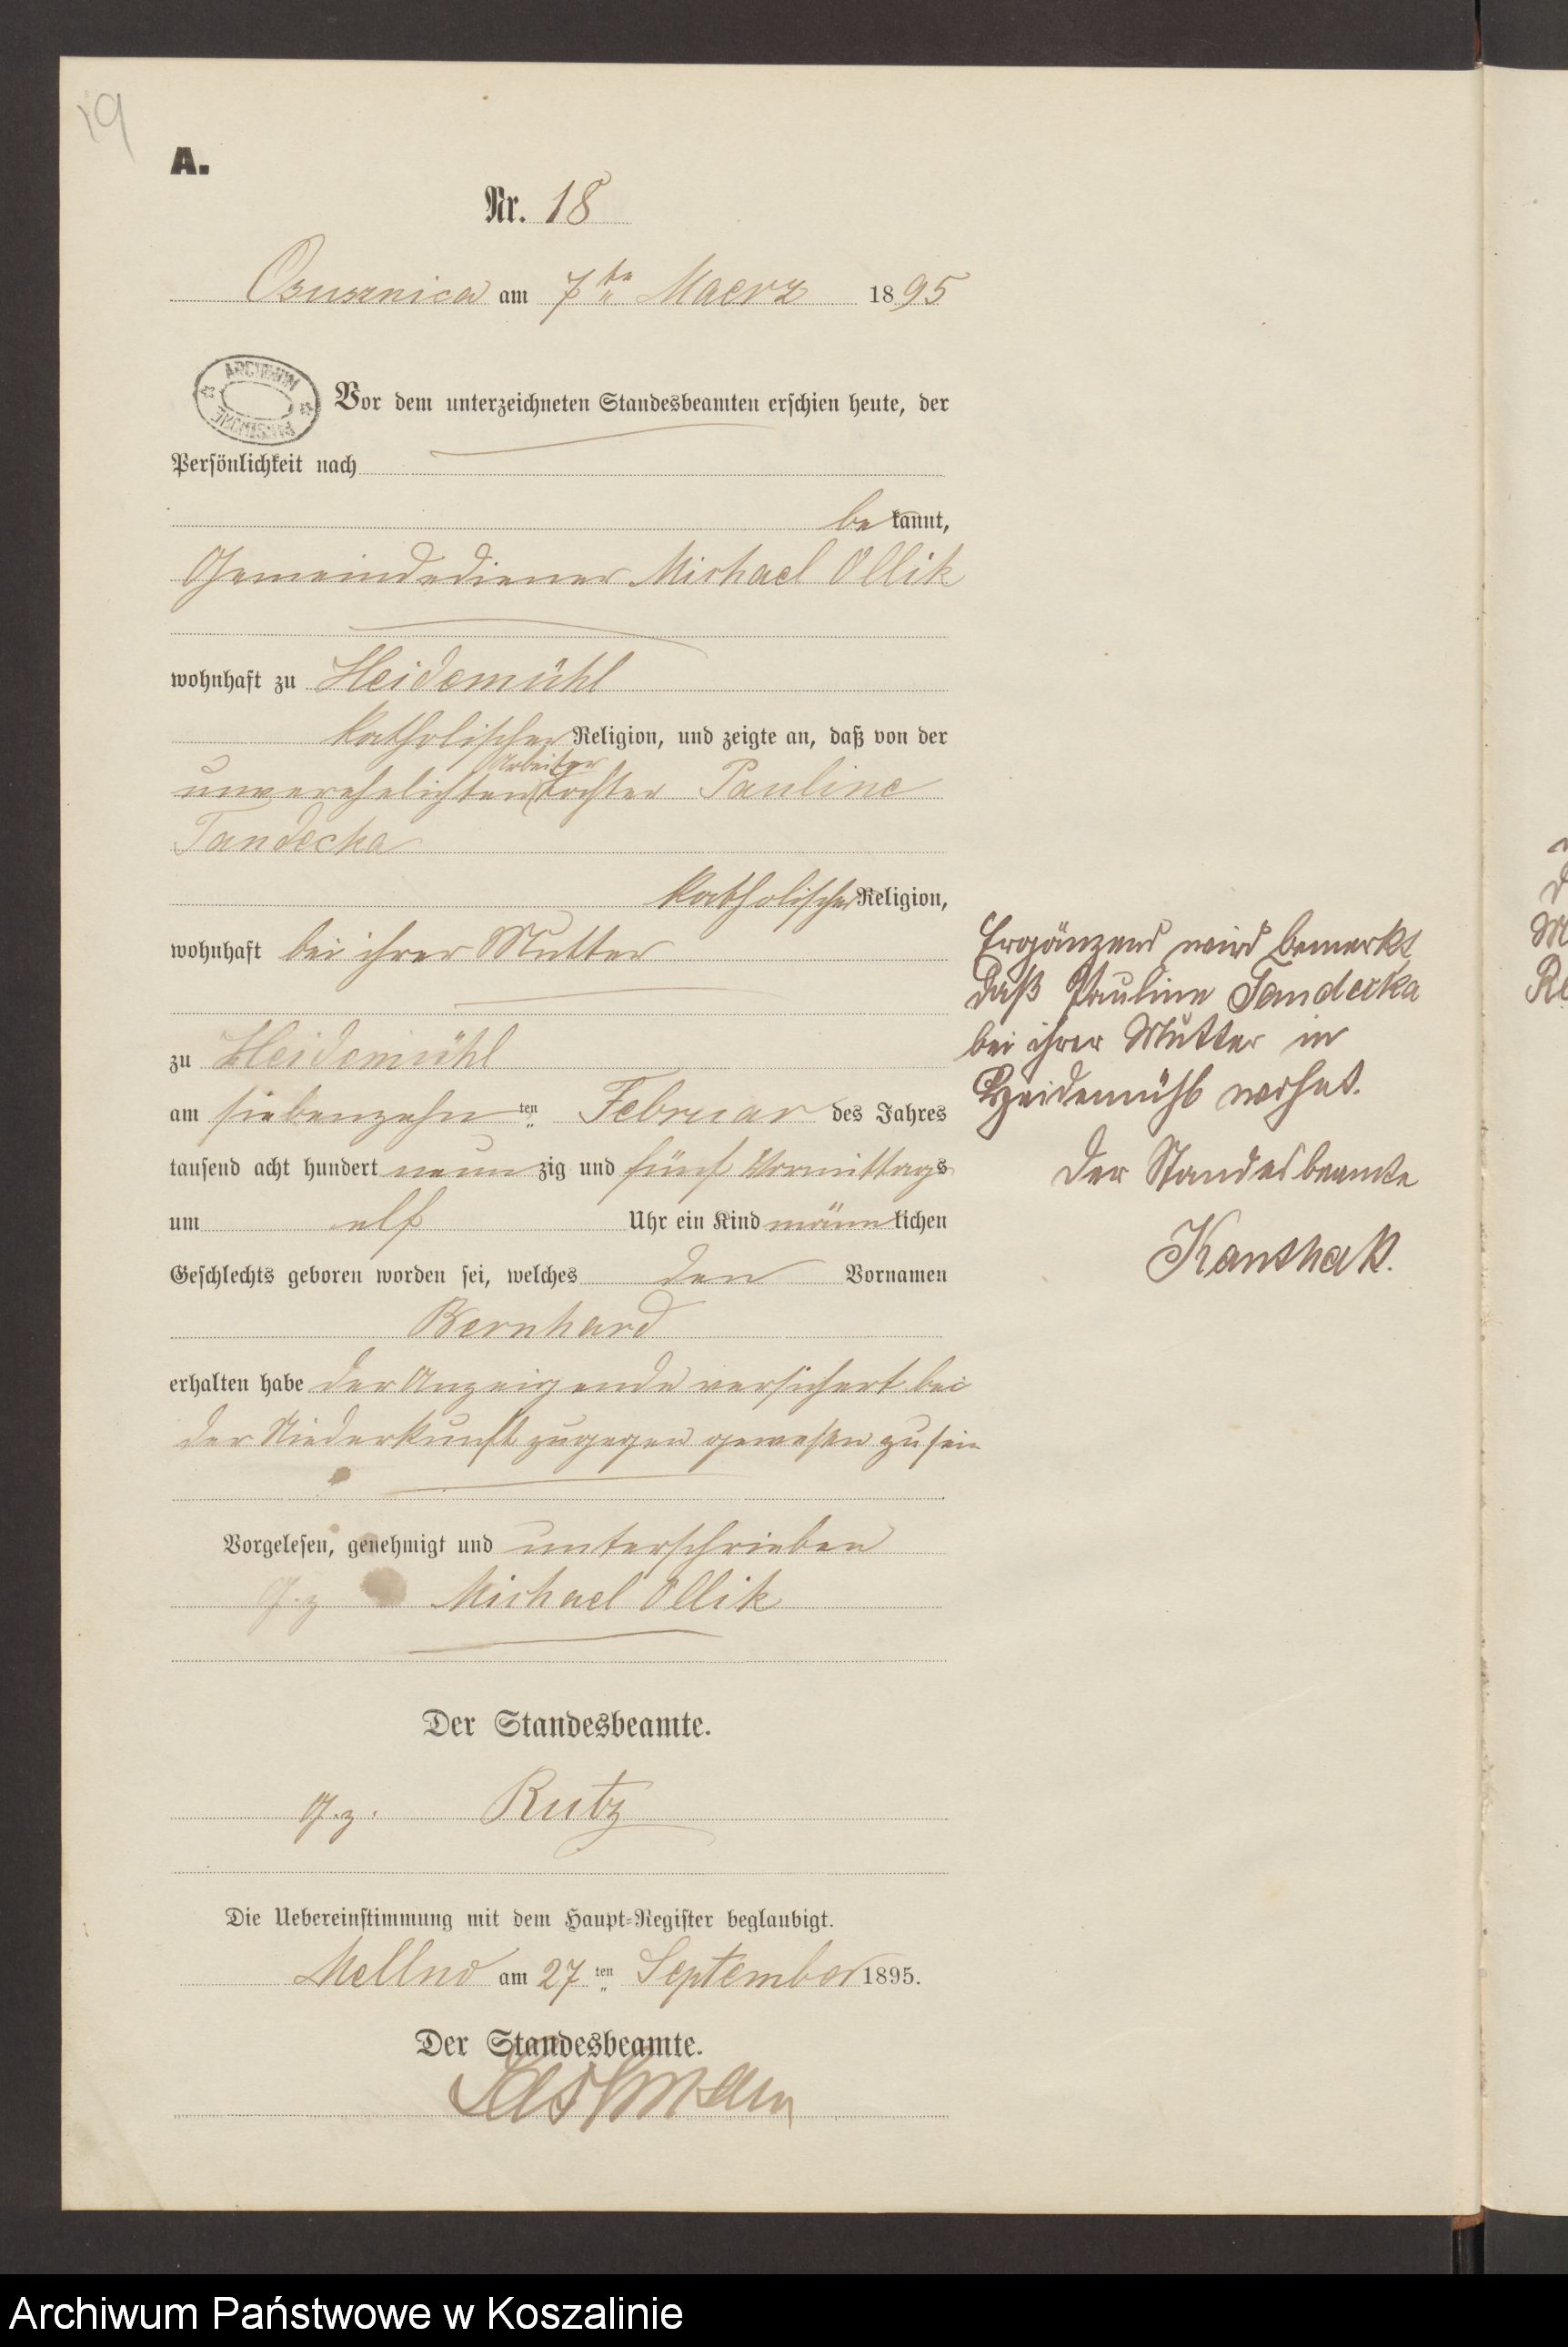 19
A.
Nr. 18
Osusznica am 7ten Maerz 1895
ARCHIWUM
PAŃSTWOWE
Vor dem unterzeichneten Standesbeamten erschien heute, der
Persönlichkeit nach
bekannt,
Gemeindediener Michael Ollik
wohnhaft zu Heidemühl
katholischer Religion, und zeigte an, daß von der
Arbeiter
unverehelichten tochter Pauline
Tandecka
katholischer Religion,
wohnhaft bei ihrer Mutter
zu Heidemühl
am siebenzehnten Februar des Jahres
tausend acht hundert neunzig und fünf Vormittags
um elf Uhr ein Kind männlichen
Geschlechts geboren worden sei, welches den Vornamen
Bernhard
erhalten habe der Anzeigende versichert bei
der Niederkunft zugegen gewesen zu sein
Vorgelesen, genehmigt und unterschrieben
g.z Michael Ollik
Der Standesbeamte.
g.z. Rutz
Die Uebereinstimmung mit dem Haupt-Register beglaubigt.
Mellno am 27ten September 1895.
Der Standesbeamte.
Ergänzend wird bemerkt
daß Pauline Tandecka
bei ihrer Mutter in
Heidemühl wohnt.
Der Standesbeamte
Archiwum Państwowe w Koszalinie